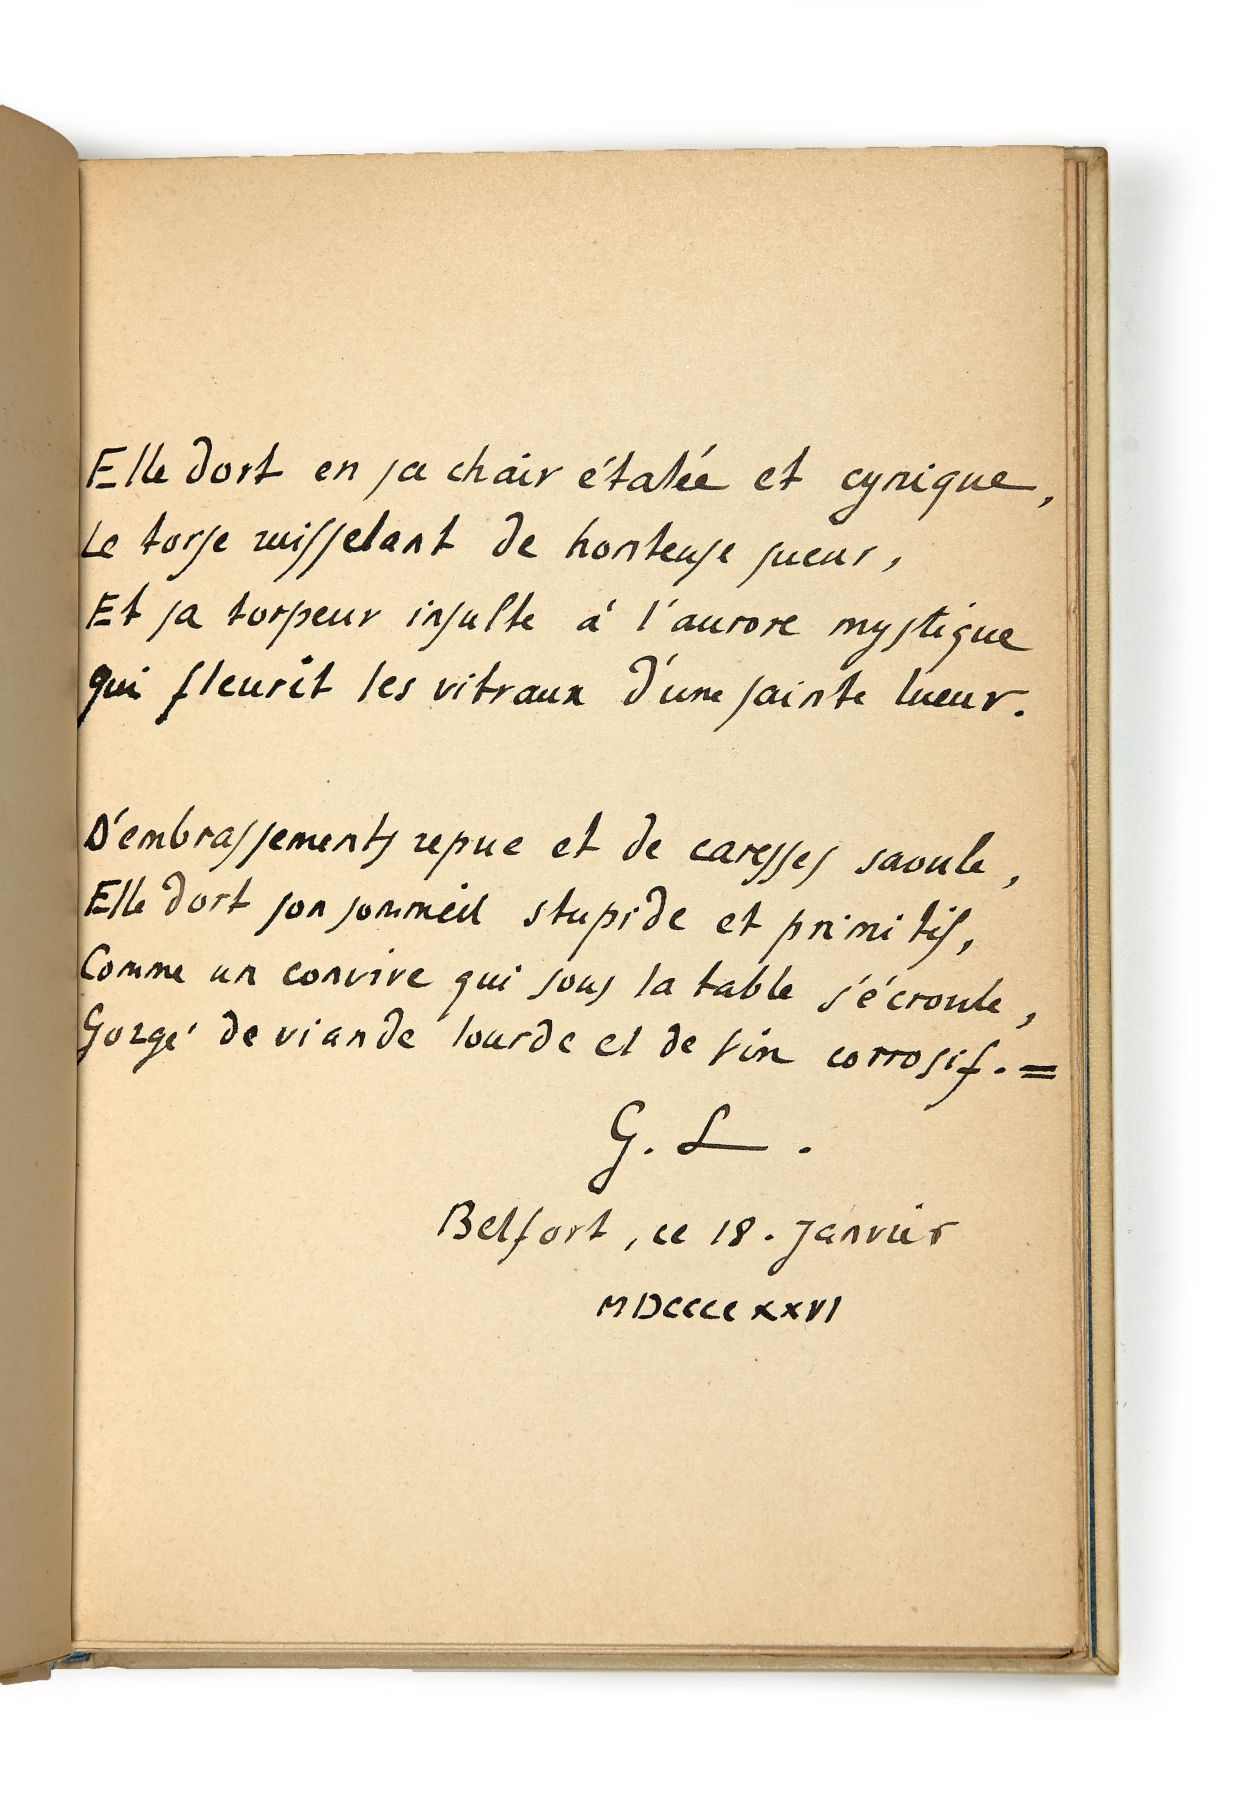 Elle dort en sa chair étalée et cynique,
Le torse ruisselant de honteuse sueur,
Et sa torpeur insulte à l'aurore mystique
qui fleurit les vitraux d'une sainte lueur.
D'embrassements repue et de caresses saoule,
Elle dort son sommeil stupide et primitif,
Comme un convive qui sous la table s'écroule,
Gorgé de viande lourde et de vin corrosif. =
G. L.
Belfort, ce 18. Janvier
MDCCCCXXVI